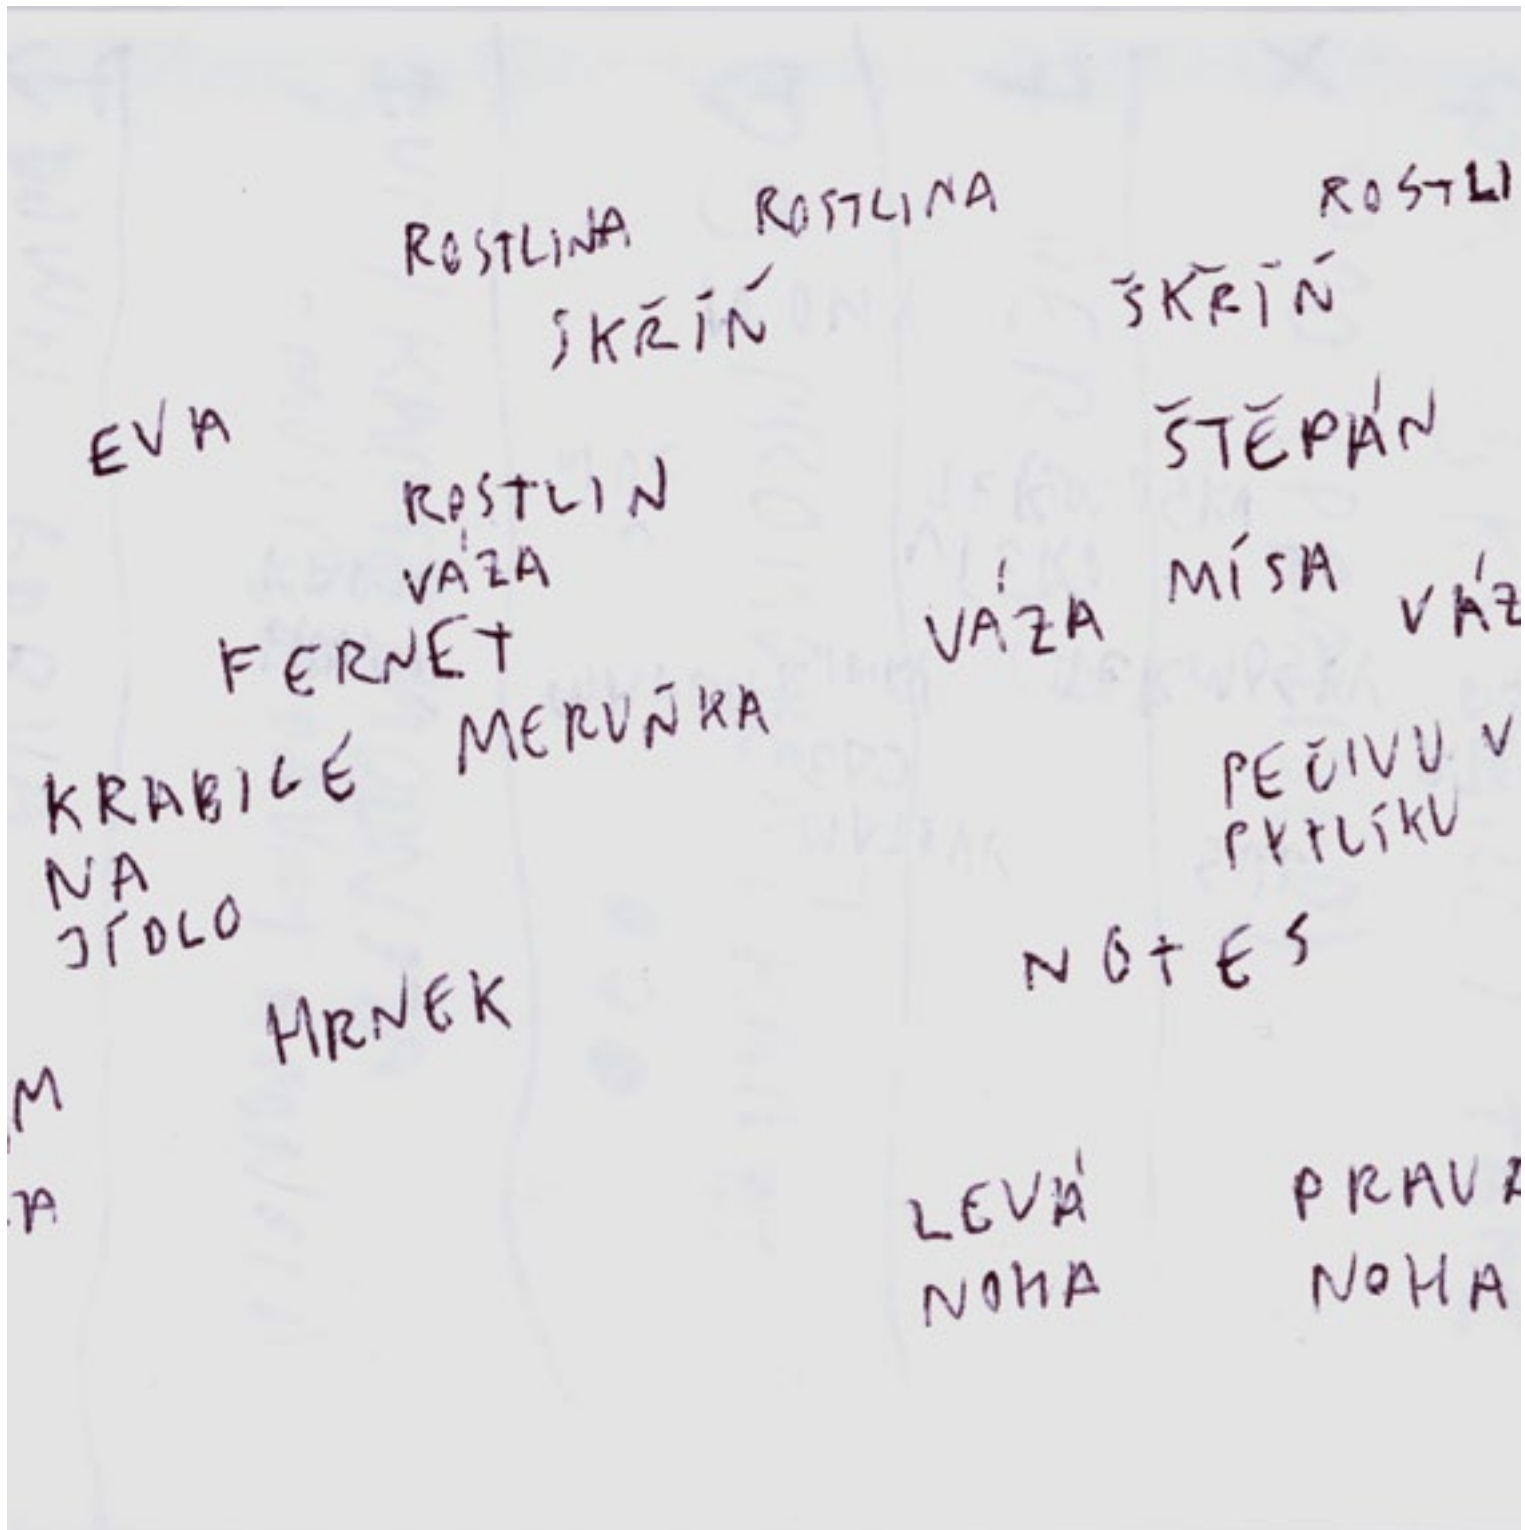 ROSTLINA ROSTLINA ROSTLI
SKŘÍŇ ŠKŘÍŇ
EVA ŠTĚPÁN
ROSTLIN
VÁZA VÁZA MÍSA VÁZ
FERNET
MERUŇKA
KRABILE PEČIVU V
NA PYTLÍKU
JÍDLO NOTES
HRNEK
M
LEVÁ PRAVÁ
NOHA NOHA